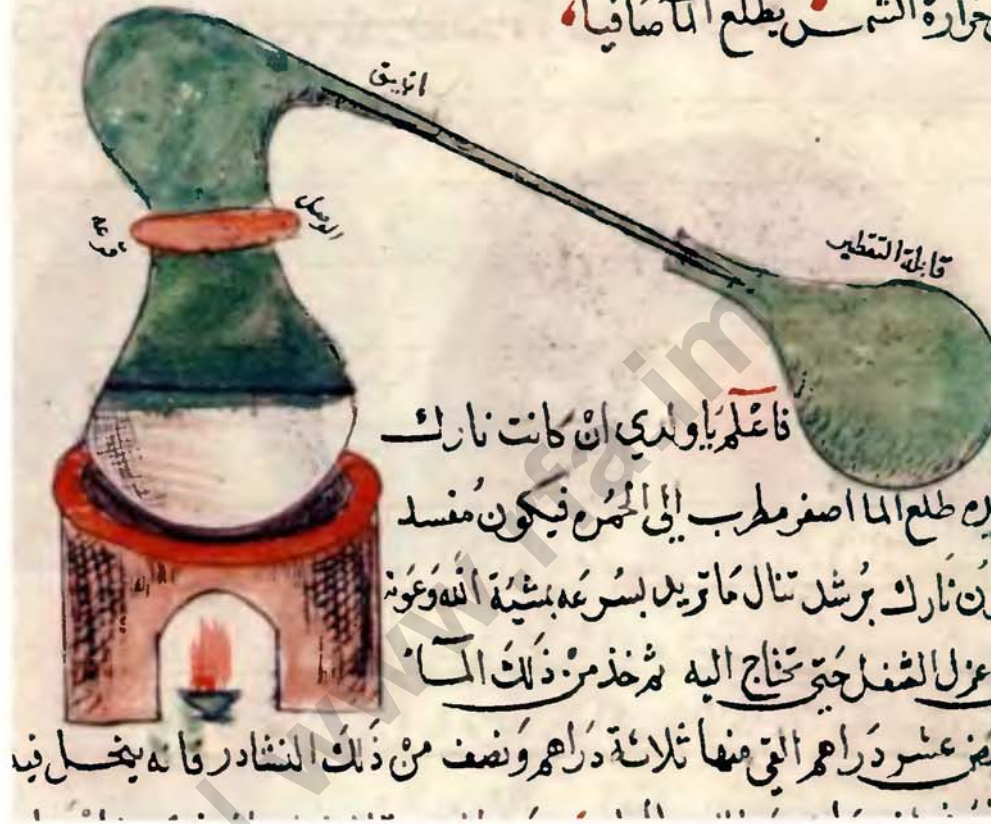 حرارة الشمس يطلع الما صافيا
انبيق
الوصل
قرعة
قابلة التقطير
فاعلم يا ولدي ان كانت نارك
طلع الما اصفر مطرب الى الحمره فيكون مفسد
نارك برشد تنال ما تريد بسرعه بمشية الله وعونه
عزل الثفل حتى تحتاج اليه ثم خذ من ذلك الما
عشر دراهم القي منها ثلاثة دراهم ونصف من ذلك النشادر فانه ينحل فيه
www.rfa.im